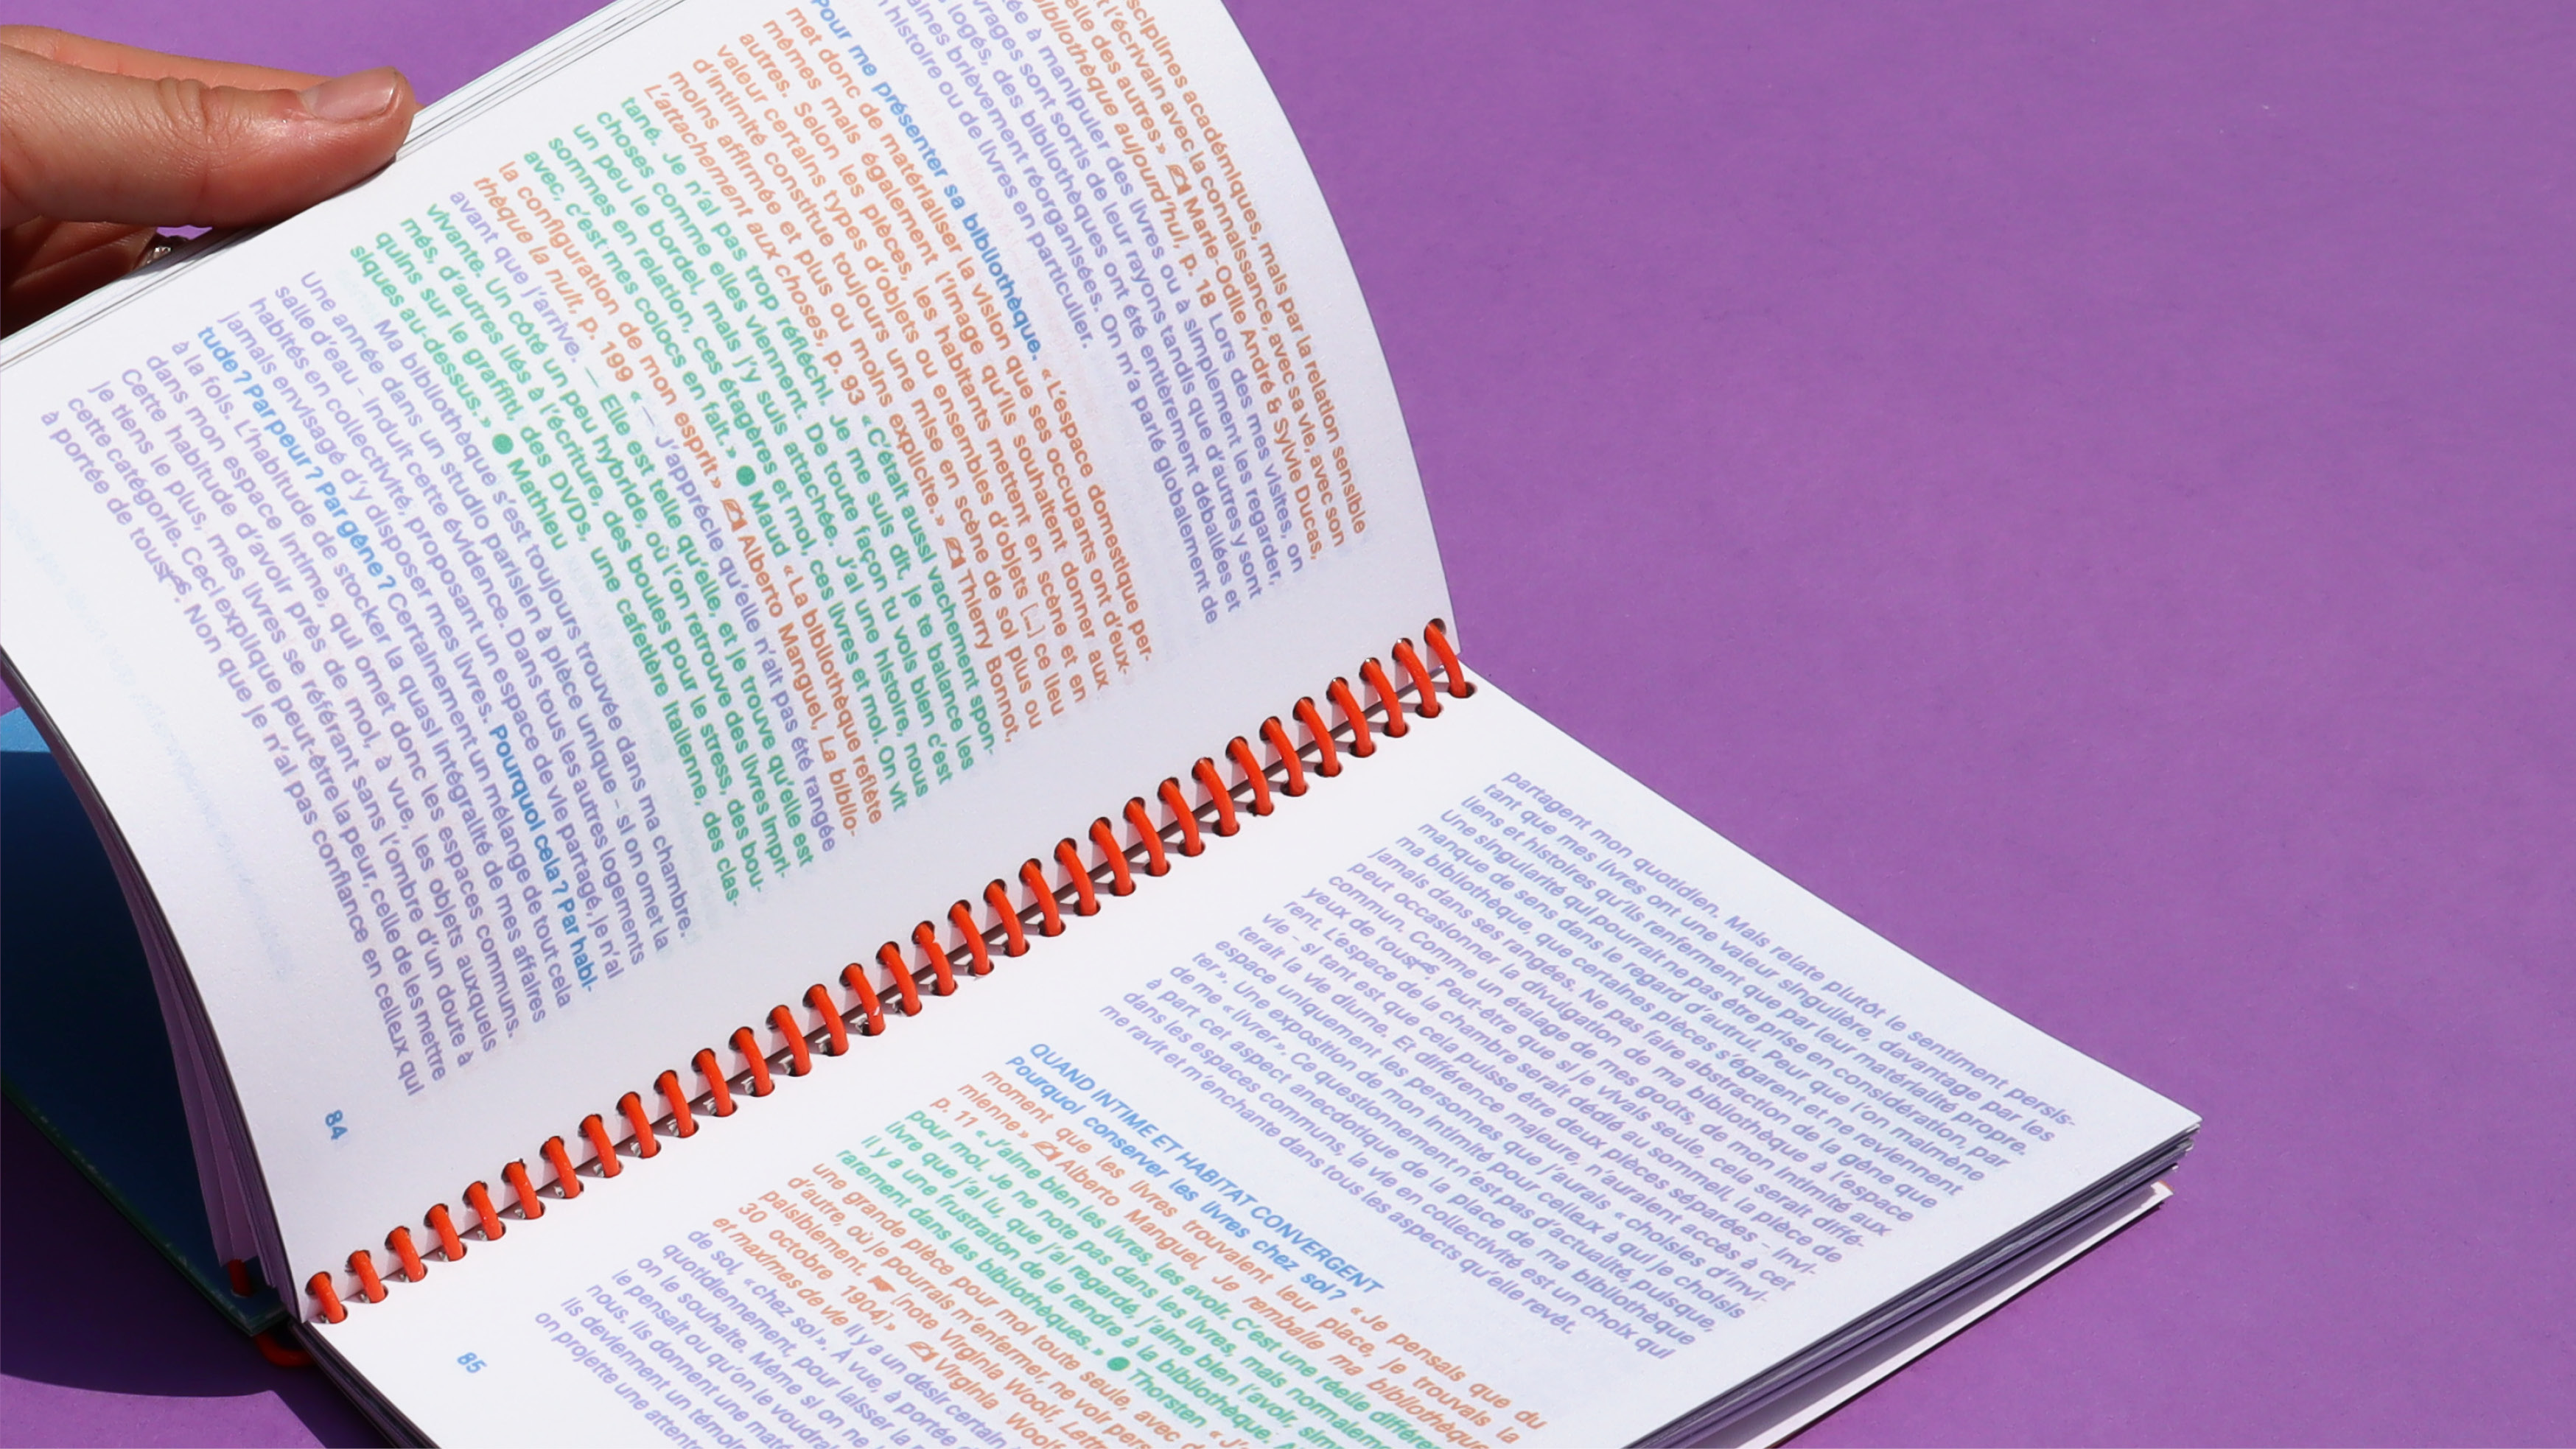 sciplines académiques, mais par la relation sensible
t l'écrivain avec la connaissance, avec sa vie, avec son
elle des autres» ✍ Marie-Odile André & Sylvie Ducas,
bibliothèque aujourd'hui, p. 18 Lors des mes visites, on
ée à manipuler des livres ou à simplement les regarder,
vrages sont sortis de leur rayons tandis que d'autres y sont
logés, des bibliothèques ont été entièrement déballées et
aines brièvement réorganisées. On m'a parlé globalement de
histoire ou de livres en particulier.
Pour me présenter sa bibliothèque. «L'espace domestique per-
met donc de matérialiser la vision que ses occupants ont d'eux-
mêmes mais également l'image qu'ils souhaitent donner aux
autres. Selon les pièces, les habitants mettent en scène et en
valeur certains types d'objets ou ensembles d'objets [...] ce lieu
d'intimité constitue toujours une mise en scène de soi plus ou
moins affirmée et plus ou moins explicite.» ✍ Thierry Bonnot,
L'attachement aux choses, p. 93 «C'était aussi vachement spon-
tané. Je n'ai pas trop réfléchi. Je me suis dit, je te balance les
choses comme elles viennent. De toute façon tu vois bien c'est
un peu le bordel, mais j'y suis attachée. J'ai une histoire, nous
sommes en relation, ces étagères et moi, ces livres et moi. On vit
avec, c'est mes colocs en fait.» ● Maud «La bibliothèque reflète
la configuration de mon esprit» ✍ Alberto Manguel, La biblio-
thèque la nuit, p. 199 «— J'apprécie qu'elle n'ait pas été rangée
avant que j'arrive. — Elle est telle qu'elle, et je trouve qu'elle est
vivante. Un côté un peu hybride, où l'on retrouve des livres impri-
més, d'autres liés à l'écriture, des boules pour le stress, des bou-
quins sur le graffiti, des DVDs, une cafetière italienne, des clas-
siques au-dessus.» ● Mathieu
Ma bibliothèque s'est toujours trouvée dans ma chambre.
Une année dans un studio parisien à pièce unique – si on omet la
salle d'eau – induit cette évidence. Dans tous les autres logements
habités en collectivité, proposant un espace de vie partagé, je n'ai
jamais envisagé d'y disposer mes livres. Pourquoi cela? Par habi-
tude? Par peur? Par gêne? Certainement un mélange de tout cela
à la fois. L'habitude de stocker la quasi intégralité de mes affaires
dans mon espace intime, qui omet donc les espaces communs.
Cette habitude d'avoir près de moi, à vue, les objets auxquels
je tiens le plus, mes livres se référant sans l'ombre d'un doute à
cette catégorie. Ceci explique peut-être la peur, celle de les mettre
à portée de tous. Non que je n'ai pas confiance en celleux qui
84
partagent mon quotidien. Mais relate plutôt le sentiment persis-
tant que mes livres ont une valeur singulière, davantage par les
liens et histoires qu'ils renferment que par leur matérialité propre.
Une singularité qui pourrait ne pas être prise en considération, par
manque de sens dans le regard d'autrui. Peur que l'on malmène
ma bibliothèque, que certaines pièces s'égarent et ne reviennent
jamais dans ses rangées. Ne pas faire abstraction de la gêne que
peut occasionner la divulgation de ma bibliothèque à l'espace
commun. Comme un étalage de mes goûts, de mon intimité aux
yeux de tous. Peut-être que si je vivais seule, cela serait diffé-
rent. L'espace de la chambre serait dédié au sommeil, la pièce de
vie – si tant est que cela puisse être deux pièces séparées – invi-
terait la vie diurne. Et différence majeure, n'auraient accès à cet
espace uniquement les personnes que j'aurais «choisies d'invi-
ter». Une exposition de mon intimité pour celleux à qui je choisis
de me «livrer». Ce questionnement n'est pas d'actualité, puisque,
à part cet aspect anecdotique de la place de ma bibliothèque
dans les espaces communs, la vie en collectivité est un choix qui
me ravit et m'enchante dans tous les aspects qu'elle revêt.
QUAND INTIME ET HABITAT CONVERGENT
Pourquoi conserver les livres chez soi? «Je pensais que du
moment que les livres trouvaient leur place, je trouvais la
mienne» ✍ Alberto Manguel, Je remballe ma bibliothèque
p. 11 «J'aime bien les livres, les avoir. C'est une réelle différe
pour moi. Je ne note pas dans les livres, mais normaleme
livre que j'ai lu, que j'ai regardé, j'aime bien l'avoir, simp
Il y a une frustration de le rendre à la bibliothèque. A
rarement dans les bibliothèques.» ● Thorsten «J'
une grande pièce pour moi toute seule, avec d
d'autre, où je pourrais m'enfermer, ne voir pers
paisiblement. ☛ [note Virginia Woolf, Lettr
30 octobre 1904]» ✍ Virginia Woolf
et maximes de vie Il y a un désir certain
de soi, «chez soi». À vue, à portée d
quotidiennement, pour laisser la
on le souhaite. Même si on ne
le pensait ou qu'on le voudrai
nous. Ils donnent une maté
Ils deviennent un témoi
on projette une attent
85